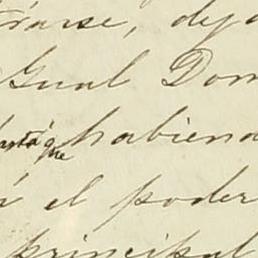 rarse, dejo
Gual Dom
hasta que habiend
á el poder
principal